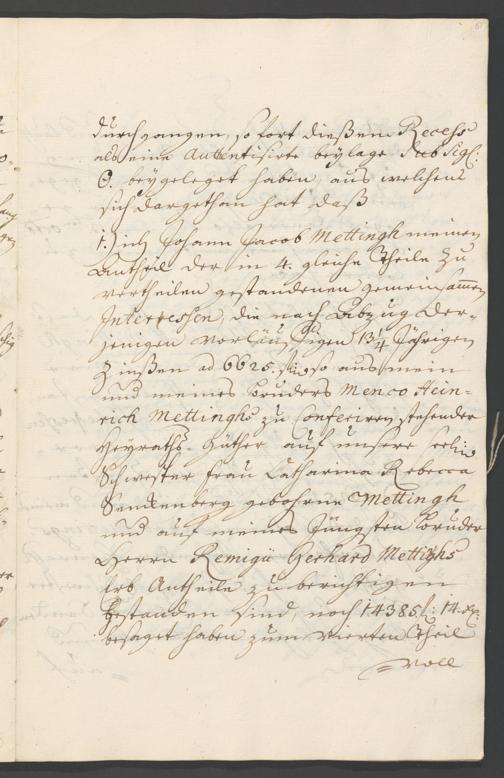 durchgangen, so fort dießem Recess
als eine Autentisirte beylage sub Sigl:
O. beygeleget haben, aus welchem
sich dargethan hat daß
1. Ich Johann Jacob Mettingh meinen
Antheil der in 4. gleiche Theile zu
vertheilen gestandenen gemeinsammen
Interessen, die nach Abzug der-
jenigen vorläuffigen 13¼ Jährigen
Zinßen ad 6625. so aus mein
und meines bruders Menco Hein-
rich Mettinghs zu conferiren stehender
Heyraths-Güther auf unsere Seel:
Schwester Frau Catharina Rebecca
Senckenberg gebohrne Mettingh
und auf meines Jüngsten bruder
Herrn Remigii Gerhard Mettighs
Erb Antheile zu berichtigen
gestanden sind, noch 14385 f: 14. Xr:
besaget haben zum vierten Theil
voll